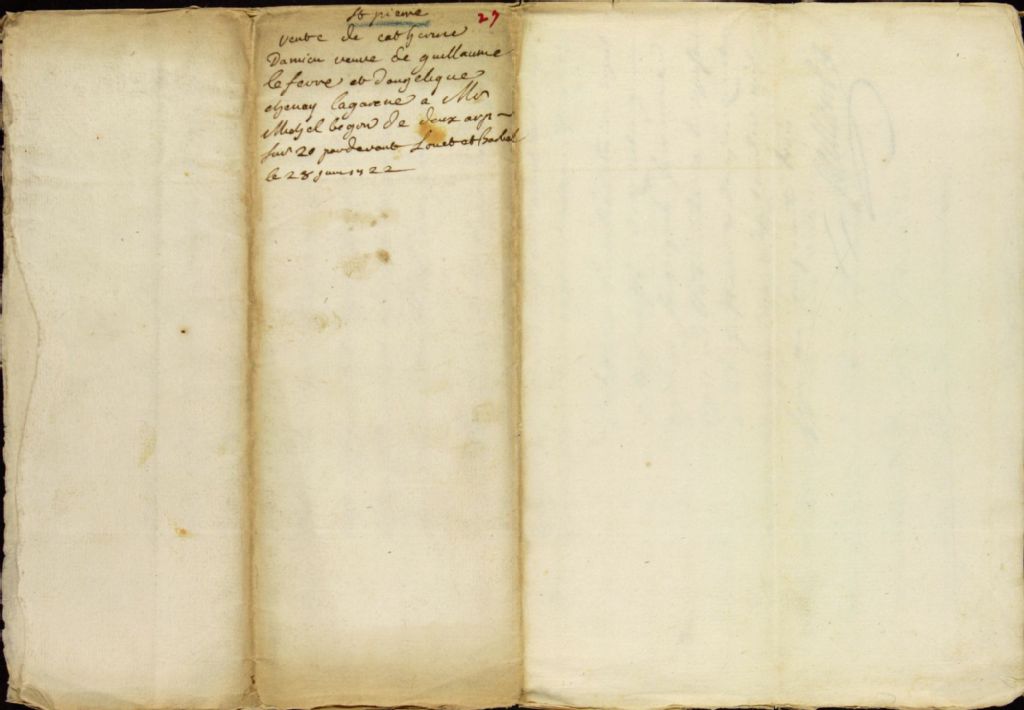 St pierre 29
vente de catherine
Damien veuve de guillaume
lefevre et dangelique
chenay lagarene a Mr
Michel begon de deux arp
sur 20 pardevant Louet et Barbel
le 28 juin 1722